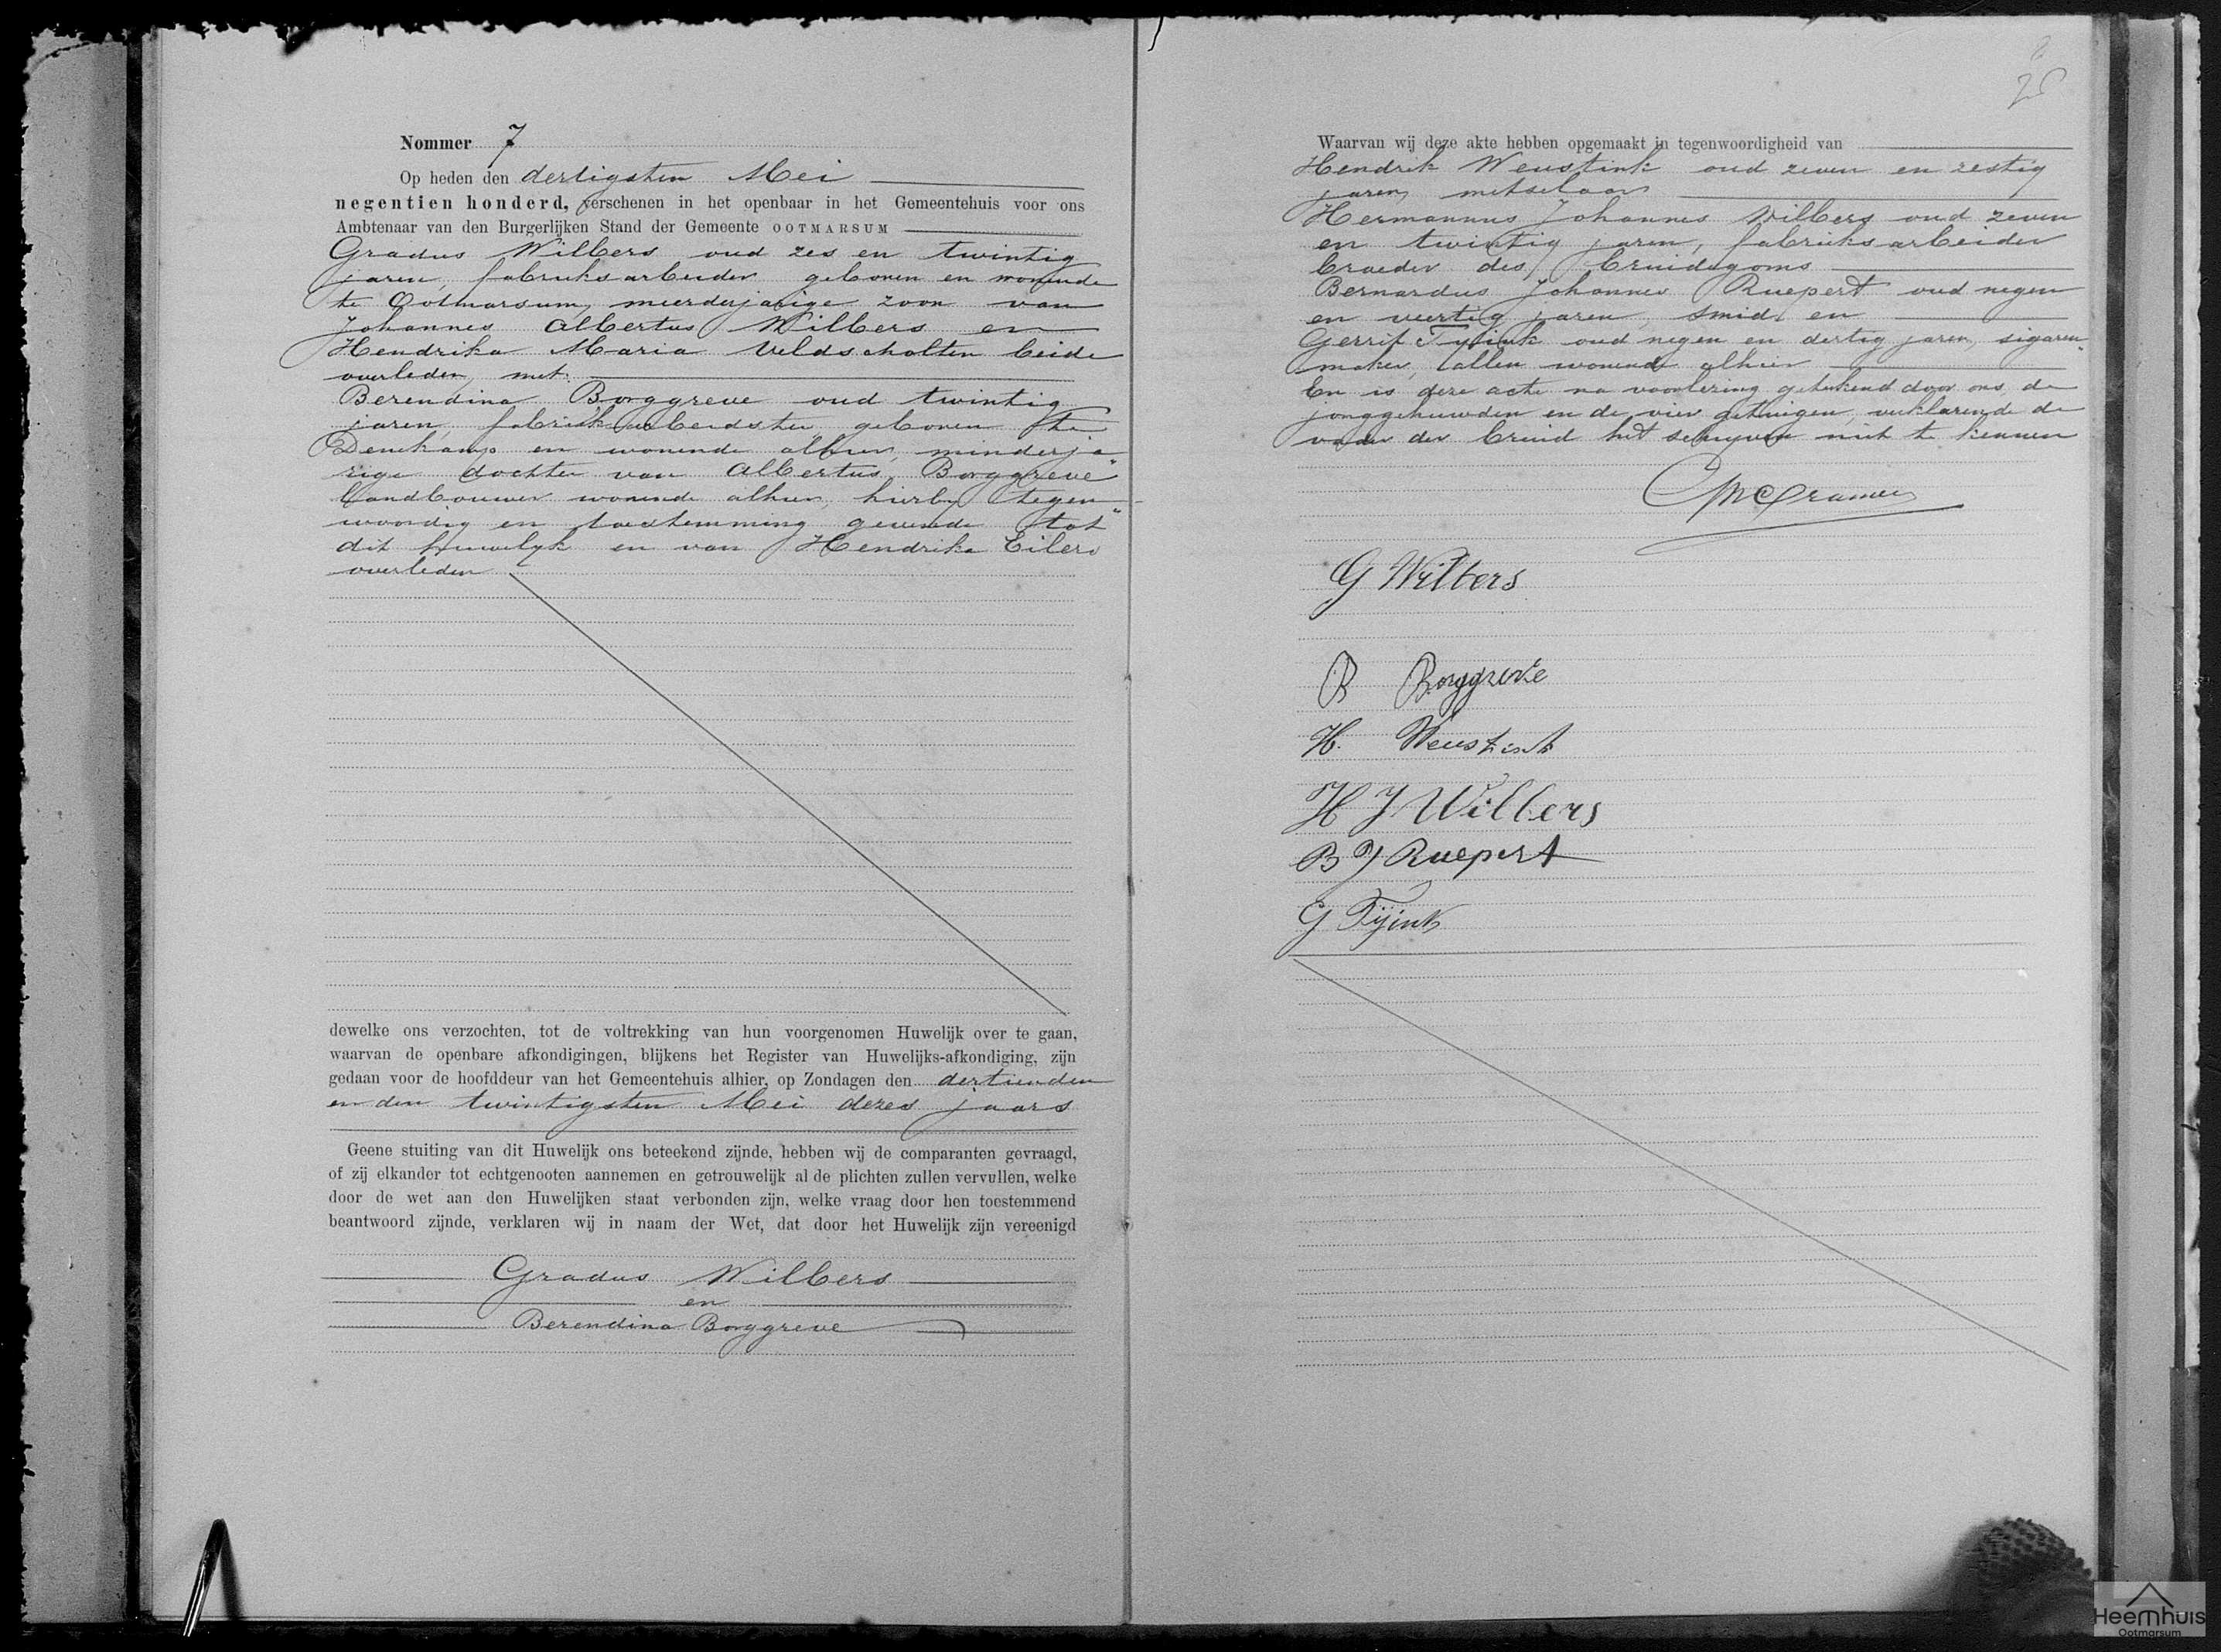 Nommer 7
Op heden den dertigsten Mei
negentien honderd, verschenen in het openbaar in het Gemeentehuis voor ons
Ambtenaar van den Burgerlijken Stand der Gemeente OOTMARSUM
Gradus Wilbers oud zes en twintig
jaren, fabrieksarbeider geboren en wonende
te Ootmarsum, meerderjarige zoon van
Johannes Albertus Wilbers en
Hendrika Maria Veldscholten beide
overleden, met
Berendina Borggreve oud twintig
jaren, fabriekarbeidster, geboren te
Denekamp en wonende alhier, minderja"
rige dochter van Albertus Borggreve
landbouwer wonende alhier, hierby tegen"
woordig en toestemming gevende tot
dit huwelyk en van Hendrika Eilers
overleden
dewelke ons verzochten, tot de voltrekking van hun voorgenomen Huwelijk over te gaan,
waarvan de openbare afkondigingen, blijkens het Register van Huwelijks-afkondiging, zijn
gedaan voor de hoofddeur van het Gemeentehuis alhier, op Zondagen den dertienden
en den twintigsten Mei dezes jaars
Geene stuiting van dit Huwelijk ons beteekend zijnde, hebben wij de comparanten gevraagd,
of zij elkander tot echtgenooten aannemen en getrouwelijk al de plichten zullen vervullen, welke
door de wet aan den Huwelijken staat verbonden zijn, welke vraag door hen toestemmend
beantwoord zijnde, verklaren wij in naam der Wet, dat door het Huwelijk zijn vereenigd
Gradus Wilbers
en
Berendina Borggreve
25
Waarvan wij deze akte hebben opgemaakt in tegenwoordigheid van
Hendrik Weustink oud zeven en zestig
jaren, metselaar
Hermannus Johannes Wilbers oud zeven
en twintig jaren, fabrieksarbeider
broeder des bruidegoms
Bernardus Johannes Ruepert oud negen
en veertig jaren, smid en
Gerrit Tyink oud negen en dertig jaren, sigaren"
maker, allen wonende alhier
En is deze acte na voorlezing geteekend door ons, de
jonggehuwden en de vier getuigen, verklarende de
vader der bruid het schryven niet te kennen
Cramer
G Wilbers
B Borggreve
H. Weustink
H J Wilbers
B J Ruepert
G Tyink
Heemhuis
Ootmarsum